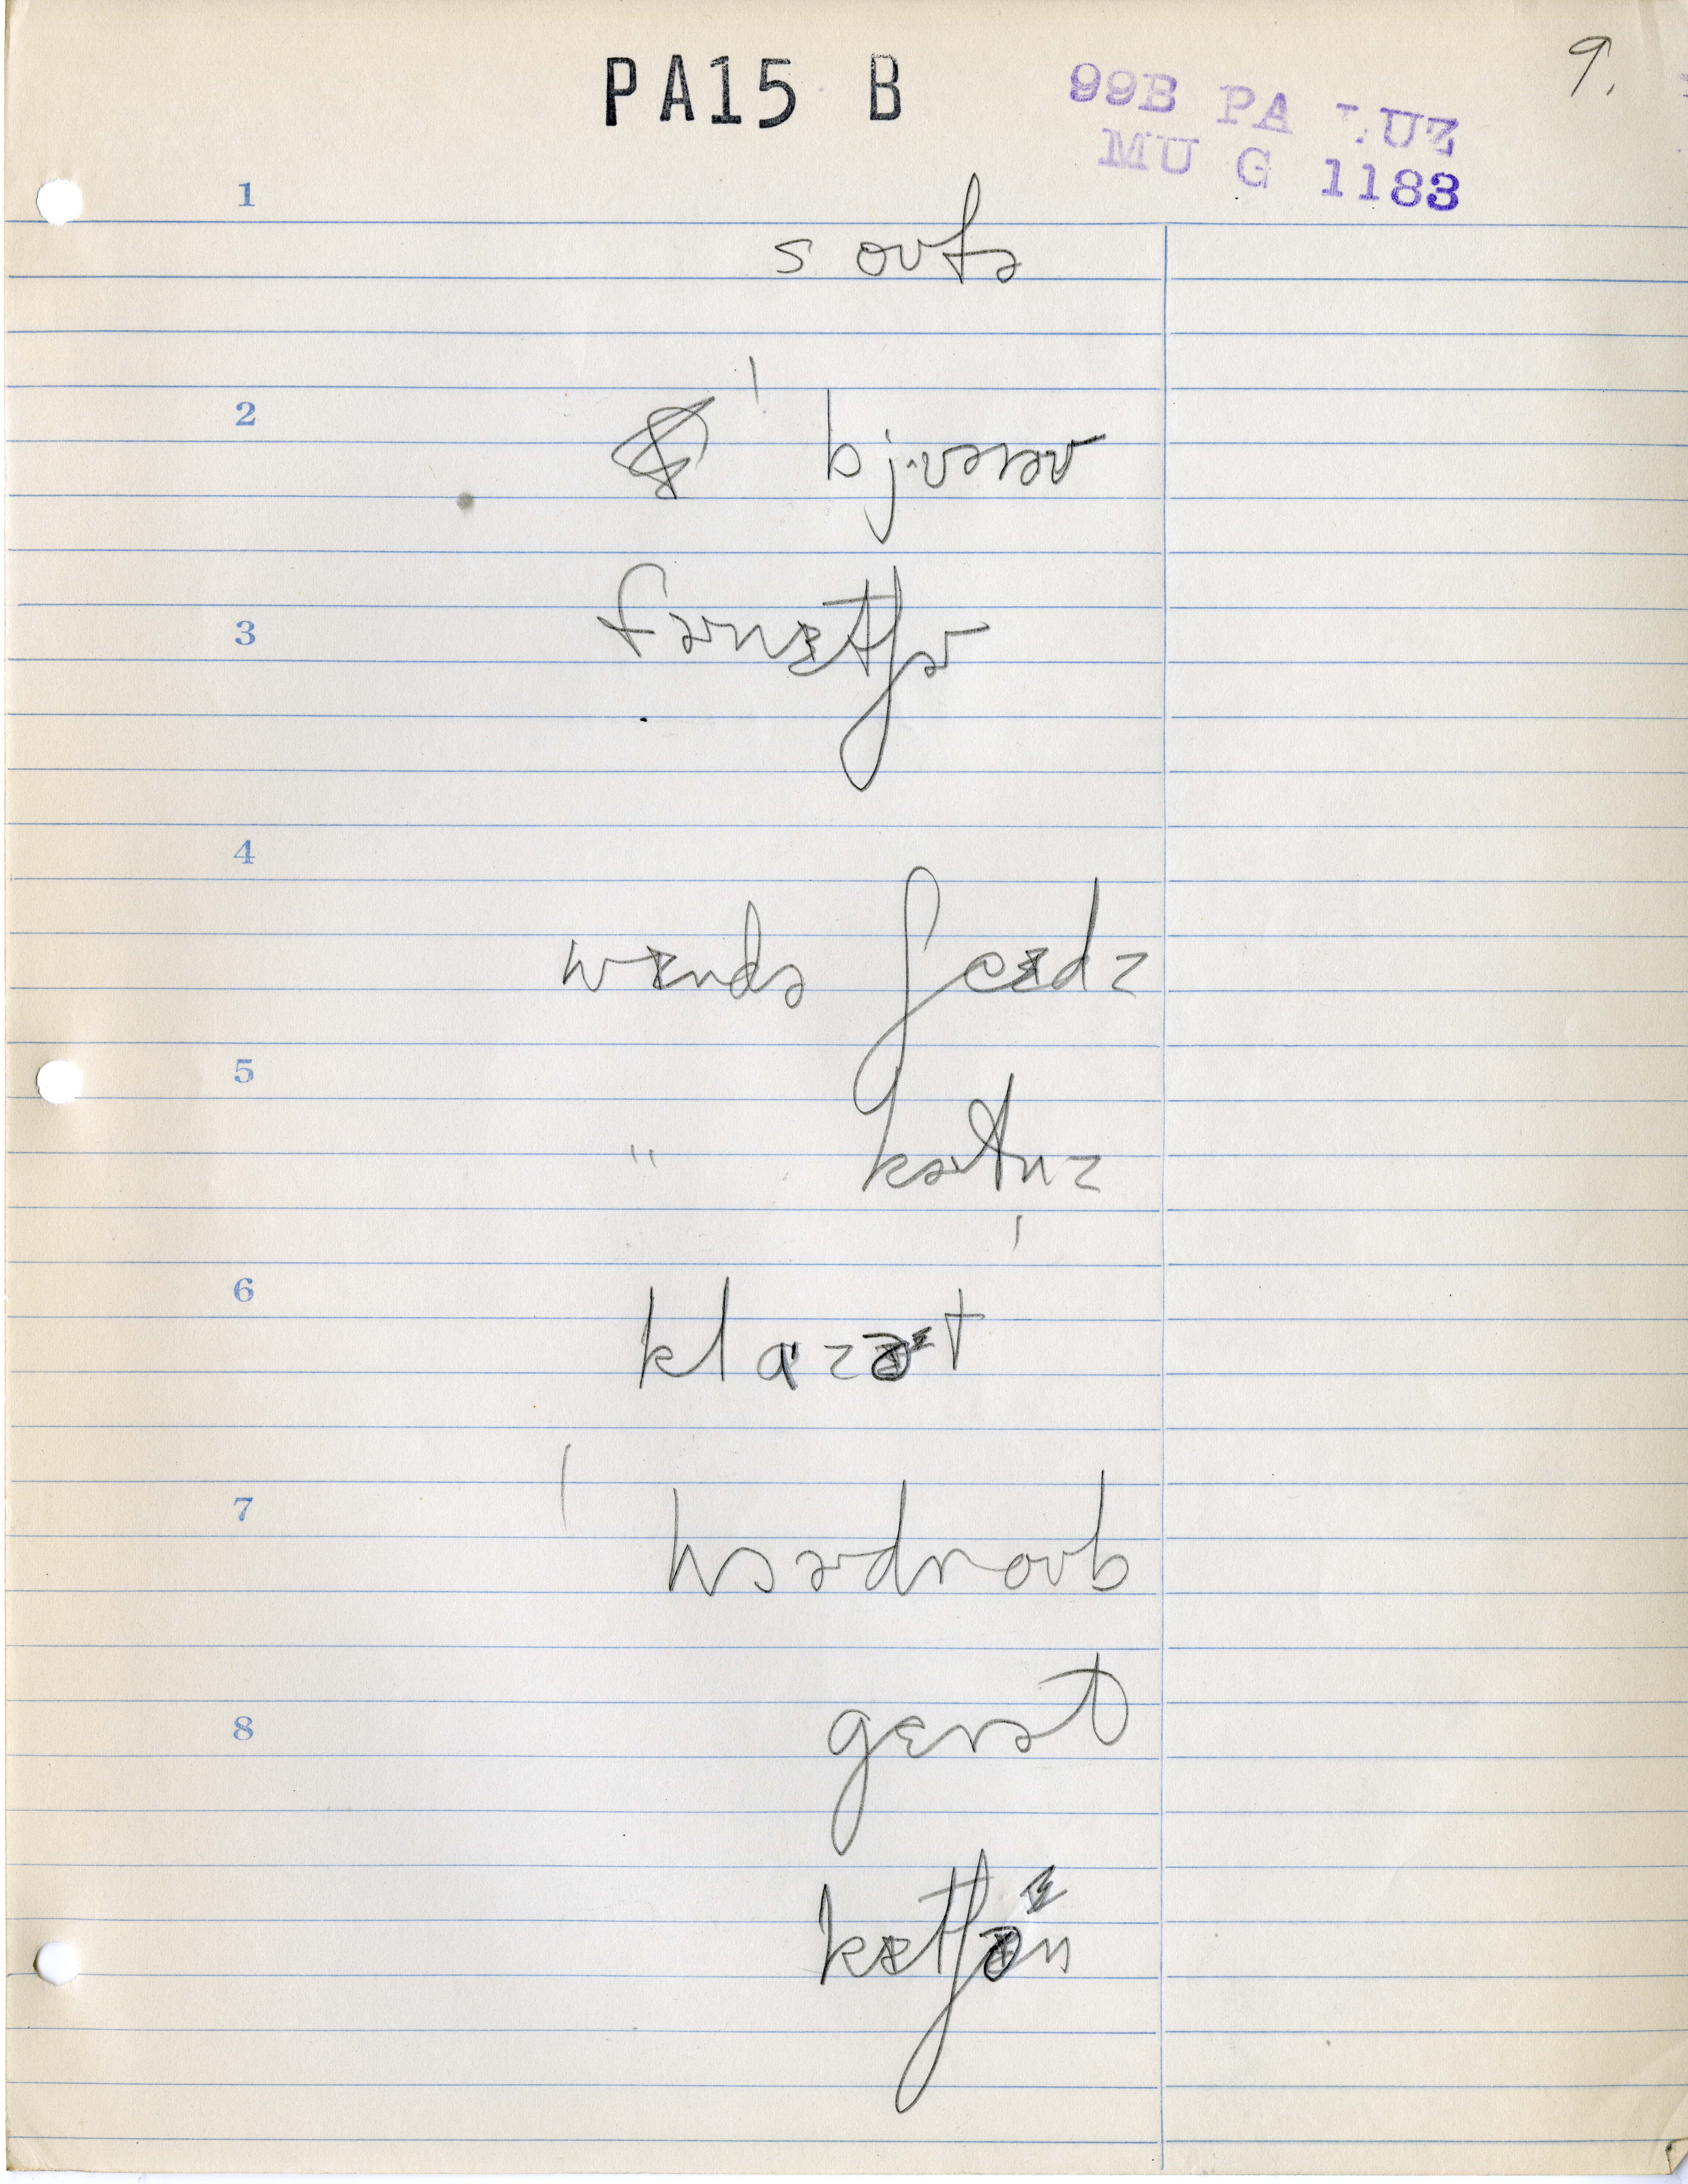 PA15 B
99B PA LUZ
MU G 1183
9.
1
soʊfə
2
bjʊroʊ
3
fɚnɪtʃɚ
4
wɪndə ʃeɪdz
5
" kɚtnz
6
klɑzəᶦt
7
wɔɚdroʊb
8
gɛrət
kɪtʃəᶦn